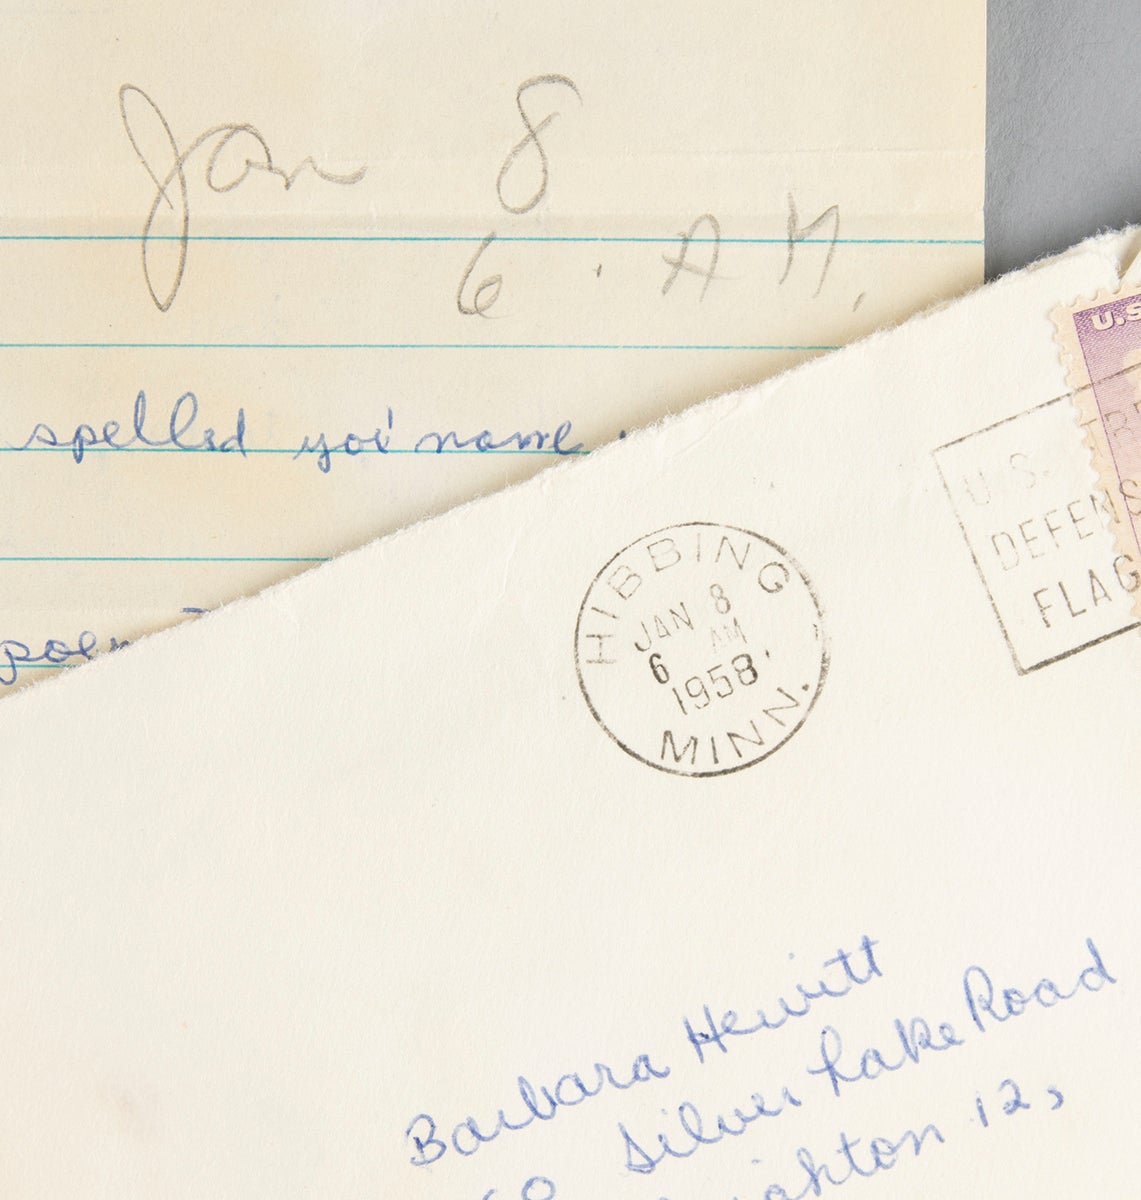 Jan 8
6. A M.
spelled you' name.
U.S
HIBBING
JAN 8
6 AM
1958
MINN.
U.S.
DEFENS
FLAG
Barbara Hewitt
Silver Lake Road
ighton 12,